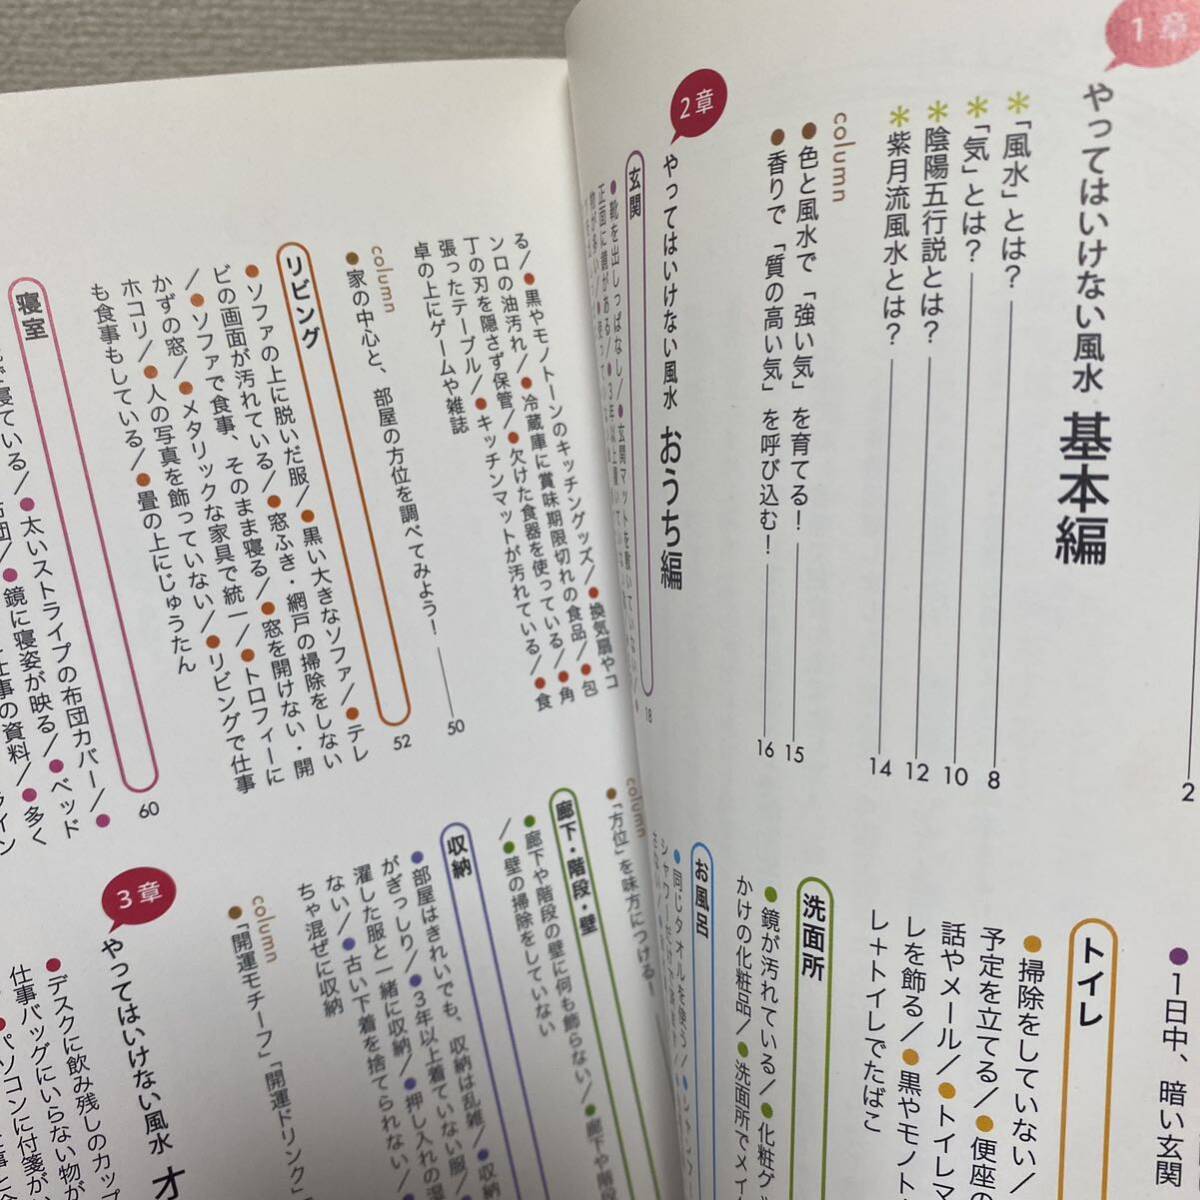 2
1章
やってはいけない風水 基本編
*「風水」とは? 8
*「気」とは? 10
*陰陽五行説とは? 12
*紫月流風水とは? 14
column
●色と風水で「強い気」を育てる! 15
●香りで「質の高い気」を呼び込む! 16
2章
やってはいけない風水 おうち編
玄関 18
●靴を出しっぱなし/●玄関マットを敷いていない/●
正面に鏡がある/●3年以上履いていない
●1日中、暗い玄関
トイレ
●掃除をしていない/
予定を立てる/●便座の
話やメール/●トイレマ
しを飾る/●黒やモノト
レ+トイレでたばこ
洗面所
●鏡が汚れている/●化粧グッ
かけの化粧品/●洗面所でメイ
お風呂
●同じタオルを使う/
る/●黒やモノトーンのキッチングッズ/●換気扇やコ
ンロの油汚れ/●冷蔵庫に賞味期限切れの食品/●包
丁の刃を隠さず保管/●欠けた食器を使っている/●角
張ったテーブル/●キッチンマットが汚れている/●食
卓の上にゲームや雑誌
column
●家の中心と、部屋の方位を調べてみよう! 50
リビング 52
●ソファの上に脱いだ服/●黒い大きなソファ/●テレ
ビの画面が汚れている/●窓ふき・網戸の掃除をしない
/●ソファで食事、そのまま寝る/●窓を開けない・開
かずの窓/●メタリックな家具で統一/●トロフィーに
ホコリ/●人の写真を飾っていない/●リビングで仕事
も食事もしている/●畳の上にじゅうたん
寝室 60
で寝ている/●太いストライプの布団カバー/●
布団/●鏡に寝姿が映る/●ベッド
仕事の資料/●多く
ライン
column
●「方位」を味方につける!
廊下・階段・壁
●廊下や階段の壁に何も飾らない/●廊下や階段
/●壁の掃除をしていない
収納
●部屋はきれいでも、収納は乱雑/●収納
がぎっしり/●3年以上着ていない服/
濯した服と一緒に収納/●押し入れの湿
ない/●古い下着を捨てられない/
ちゃ混ぜに収納
column
●「開運モチーフ」「開運ドリンク」
3章
やってはいけない風水 オ
●デスクに飲み残しのカップ
仕事バッグにいらない物が
●パソコンに付箋が